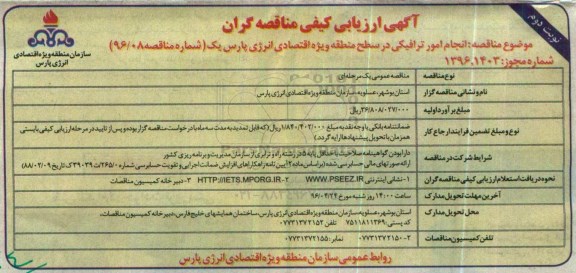 آگهی ارزیابی کیفی مناقصه گران
نوبت دوم
موضوع مناقصه: انجام امور ترافیکی در سطح منطقه ویژه اقتصادی انرژی پارس یک (شماره مناقصه ۹۶/۰۸)
شماره مجوز: ۱۳۹۶.۱۴۰۳
سازمان منطقه ویژه اقتصادی
انرژی پارس
نوع مناقصه
مناقصه عمومی یک مرحله ای
نام و نشانی مناقصه گزار
استان بوشهر، عسلویه، سازمان منطقه ویژه اقتصادی انرژی پارس
مبلغ برآورد اولیه
۳۶/۸۰۸/۰۲۷/۰۰۰ ریال
نوع و مبلغ تضمین فرایند ارجاع کار
ضمانتنامه بانکی یا وجه نقد به مبلغ ۱/۸۴۰/۴۰۲/۰۰۰ ریال (که قابل تمدید به مدت سه ماه با درخواست مناقصه گزار بوده و پس از تایید در مرحله ارزیابی کیفی بایستی
همزمان با تحویل پیشنهادها ارایه گردد.)
شرایط شرکت در مناقصه
دارا بودن گواهینامه صلاحیت با حداقل پایه ۵ در رشته راه و ترابری از سازمان مدیریت و برنامه ریزی کشور
ارائه صورتهای مالی حسابرسی شده (بر اساس ماده ۲ آیین نامه راهکارهای افزایش ضمانت اجرایی و تقویت حسابرسی شماره
نحوه دریافت استعلام ارزیابی کیفی مناقصه گران
۱- نشانی اینترنتی WWW.PSEEZ.IR ۲- HTTP://IETS.MPORG.IR ۳- دبیرخانه کمیسیون مناقصات
آخرین مهلت تحویل مدارک
ساعت ۱۴:۰۰ روز شنبه مورخ ۹۶/۰۴/۲۴
محل تحویل مدارک
استان بوشهر، عسلویه، سازمان منطقه ویژه اقتصادی انرژی پارس، ساختمان همایشهای خلیج فارس، دبیرخانه کمیسیون مناقصات،
کد پستی: ۷۵۱۱۸۱۱۳۶۹ تلفن ۰۷۷۳۱۳۷۲۱۵۲
تلفن کمیسیون مناقصات
۰۷۷۳۱۳۷۲۱۵۰-۲ نمابر: ۰۷۷۳۱۳۷۲۱۵۵
روابط عمومی سازمان منطقه ویژه اقتصادی انرژی پارس